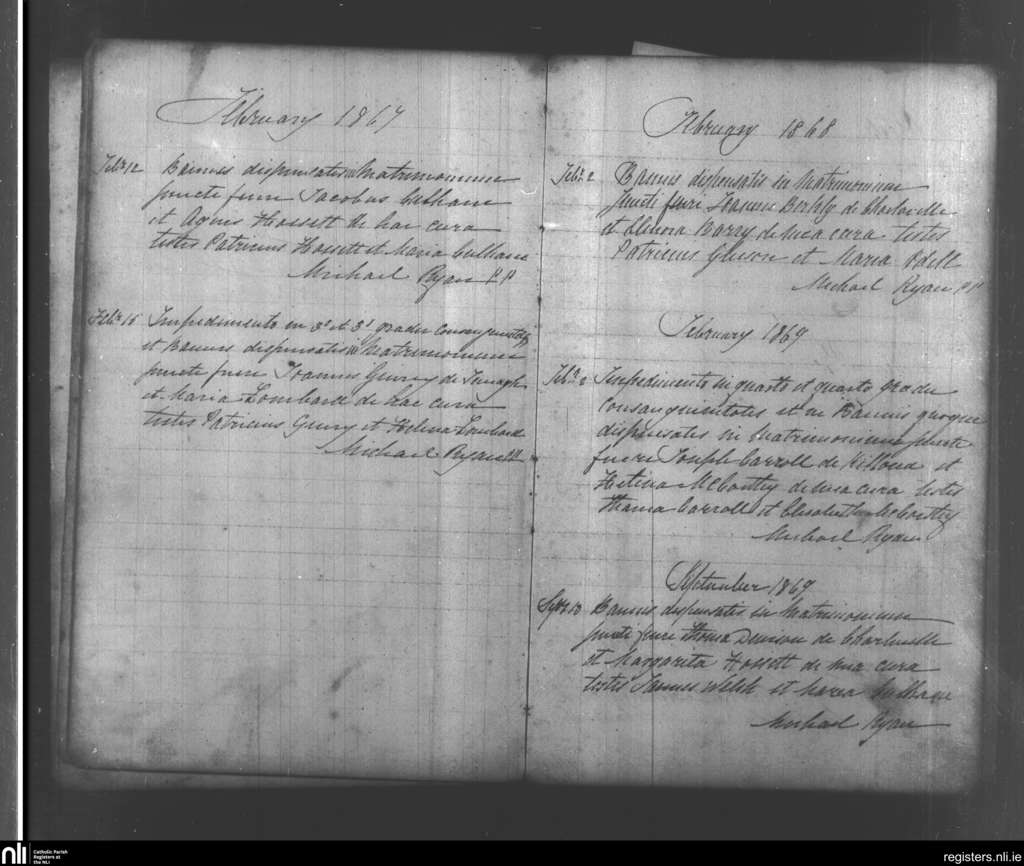 February 1867
Feb. 12 Bannis dispensatis in Matrimonium
juncti fuere Jacobus Culhane
et Agnes Hassett de hac cura
testes Patricius Hassett et Maria Culhane
Michael Ryan P P
Feb. 15 Impedimento in 3° et 3° gradu
et Bannis dispensatis in Matrimonium
juncti fuere Joannes de
et Maria Lombard de hac cura
testes Patricius et Helena Lombard
Michael Ryan PP
February 1868
Feb. 2 Bannis dispensatis in Matrimonium
juncti fuere de Charleville
et Elenora Barry de mea cura testes
Patricius Gleeson et Maria Odell
Michael Ryan PP
February 1869
Feb. 2 Impedimento in quarto et quarto gradu
Consanguinitatis et in Bannis quoque
dispensatis in Matrimonium juncti
fuere Joseph Carroll de et
McCarthy de mea cura testes
Thoma Carroll et Elisabeth McCarthy
Michael Ryan
September 1869
Bannis dispensatis in Matrimonium
juncti fuere Thoma de Charleville
et Margarita Hassett de mea cura
testes James Welsh et Maria Culhane
Michael Ryan
nli Catholic Parish
Registers at
the NLI
registers.nli.ie